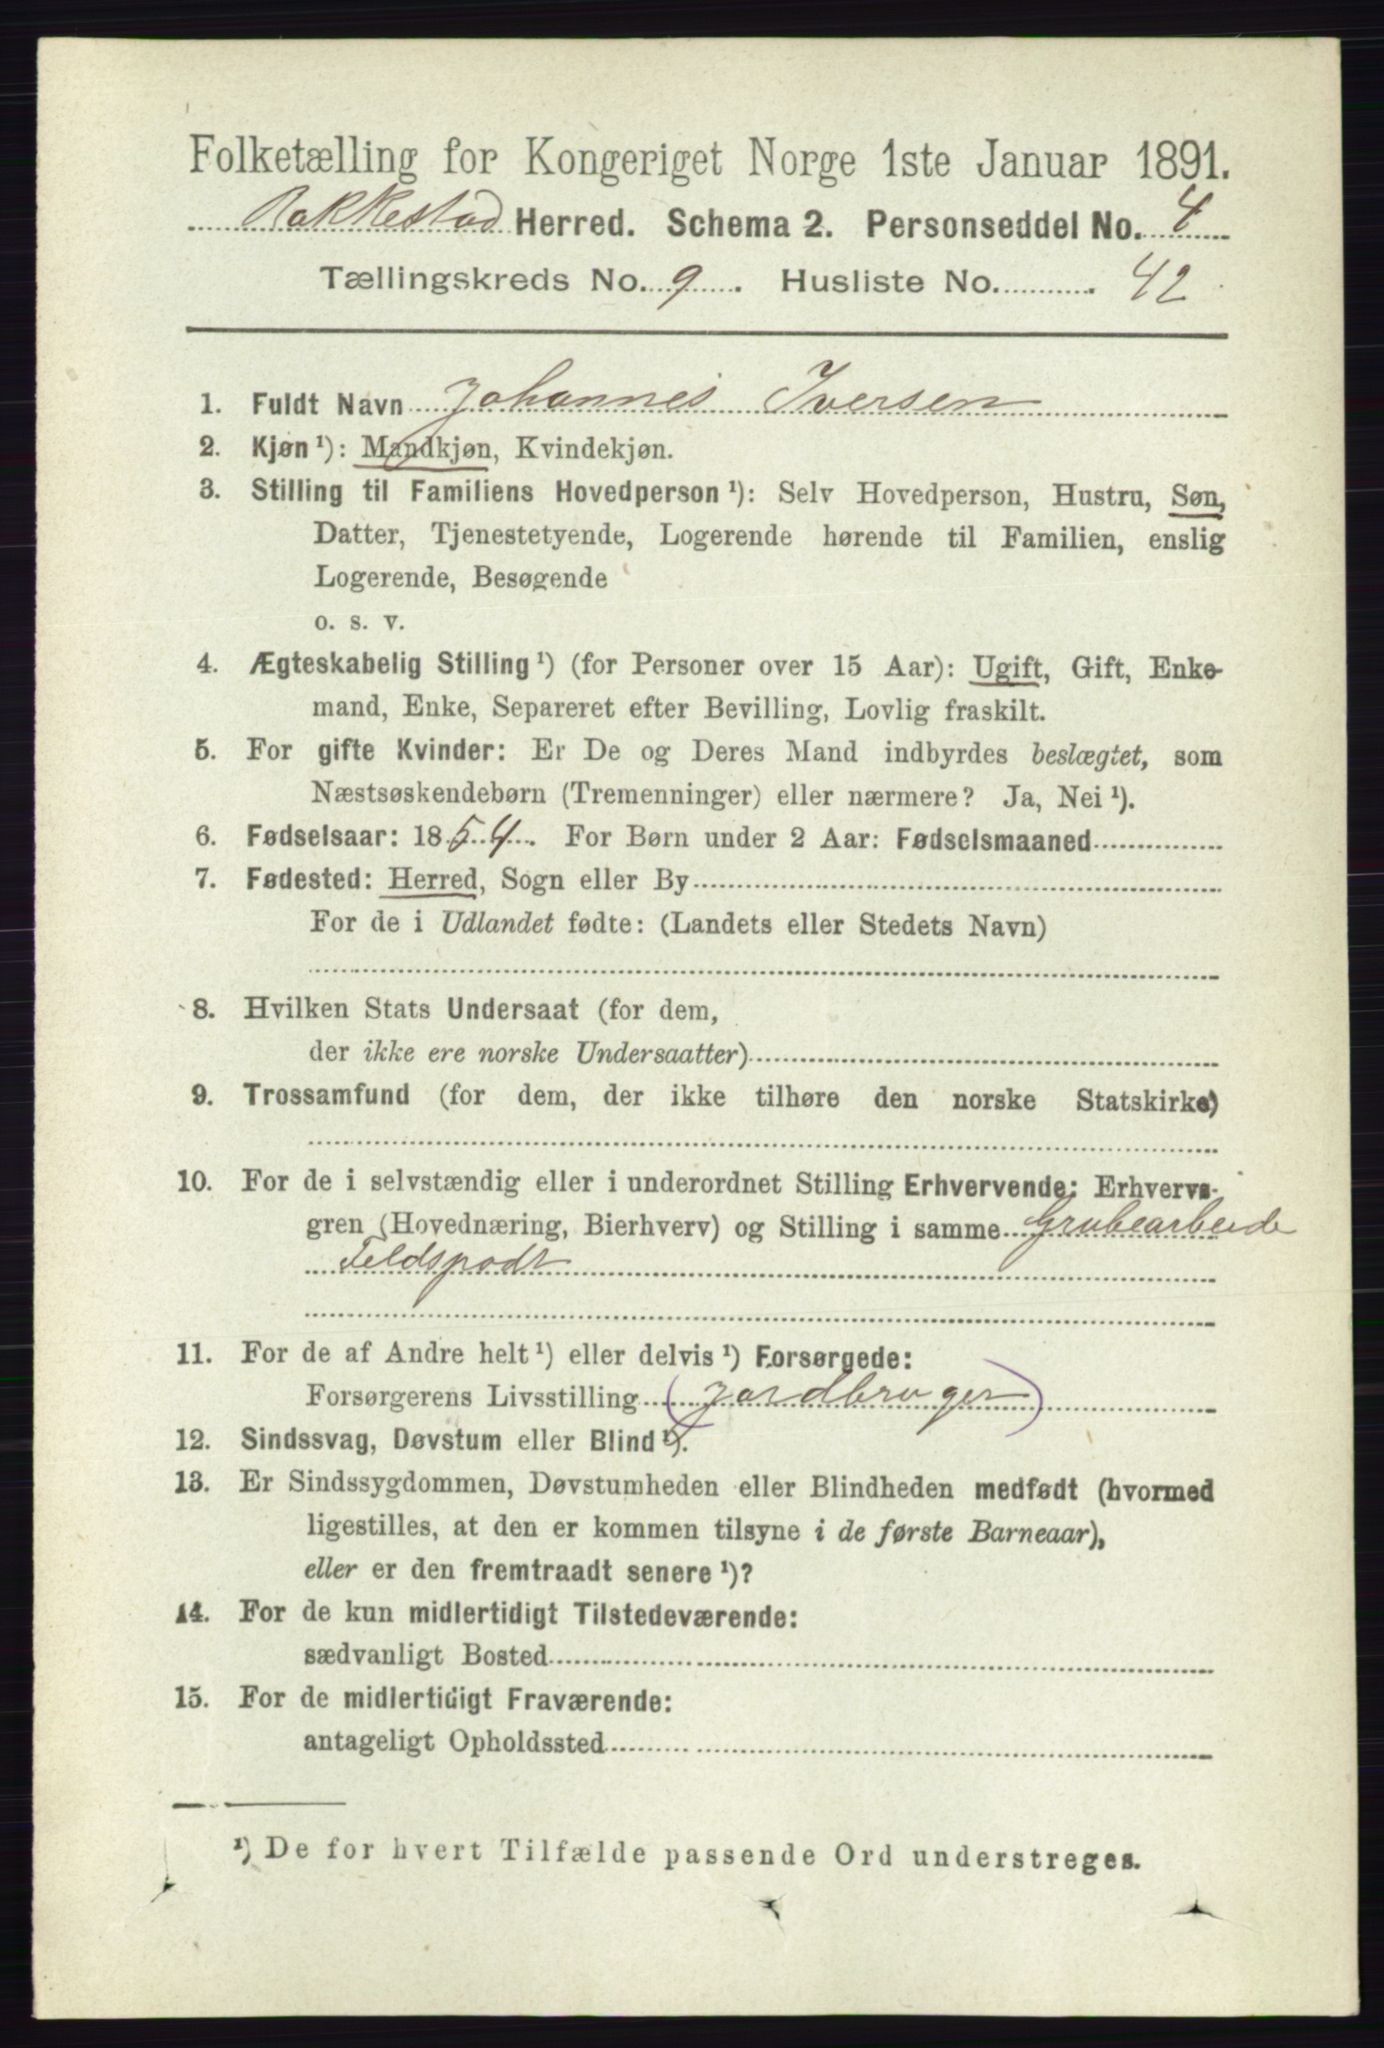 Folketælling for Kongeriget Norge 1ste Januar 1891.
Rakkestad Herred. Schema 2. Personseddel No. 4
Tællingskreds No. 9. Husliste No. 42
1. Fuldt Navn Johannes Iversen
2. Kjøn ¹): Mandkjøn, Kvindekjøn.
3. Stilling til Familiens Hovedperson ¹): Selv Hovedperson, Hustru, Søn,
Datter, Tjenestetyende, Logerende hørende til Familien, enslig
Logerende, Besøgende
o. s. v.
4. Ægteskabelig Stilling ¹) (for Personer over 15 Aar): Ugift, Gift, Enke-
mand, Enke, Separeret efter Bevilling, Lovlig fraskilt.
5. For gifte Kvinder: Er De og Deres Mand indbyrdes beslægtet, som
Næstsøskendebørn (Tremenninger) eller nærmere? Ja, Nei ¹).
6. Fødselsaar: 1854. For Børn under 2 Aar: Fødselsmaaned
7. Fødested: Herred, Sogn eller By
For de i Udlandet fødte: (Landets eller Stedets Navn)
8. Hvilken Stats Undersaat (for dem,
der ikke ere norske Undersaatter)
9. Trossamfund (for dem, der ikke tilhøre den norske Statskirke)
10. For de i selvstændig eller i underordnet Stilling Erhvervende: Erhvervs-
gren (Hovednæring, Bierhverv) og Stilling i samme Grubearbeide
Feldspadt
11. For de af Andre helt ¹) eller delvis ¹) Forsørgede:
Forsørgerens Livsstilling (Jordbruger)
12. Sindssvag, Døvstum eller Blind ¹).
13. Er Sindssygdommen, Døvstumheden eller Blindheden medfødt (hvormed
ligestilles, at den er kommen tilsyne i de første Barneaar),
eller er den fremtraadt senere ¹)?
14. For de kun midlertidigt Tilstedeværende:
sædvanligt Bosted
15. For de midlertidigt Fraværende:
antageligt Opholdssted
¹) De for hvert Tilfælde passende Ord understreges.